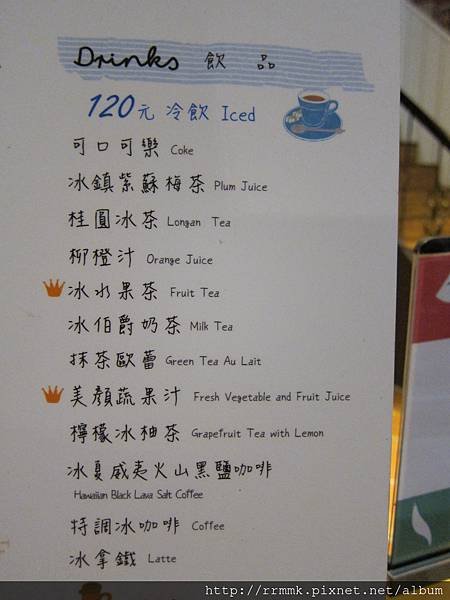 Drinks 飲 品
120元 冷飲 Iced
可口可樂 Coke
冰鎮紫蘇梅茶 Plum Juice
桂圓冰茶 Longan Tea
柳橙汁 Orange Juice
冰水果茶 Fruit Tea
冰伯爵奶茶 Milk Tea
抹茶歐蕾 Green Tea Au Lait
美顏蔬果汁 Fresh Vegetable and Fruit Juice
檸檬冰柚茶 Grapefruit Tea with Lemon
冰夏威夷火山黑鹽咖啡
Hawaiian Black Lava Salt Coffee
特調冰咖啡 Coffee
冰拿鐵 Latte
http://rrmmk.pixnet.net/album